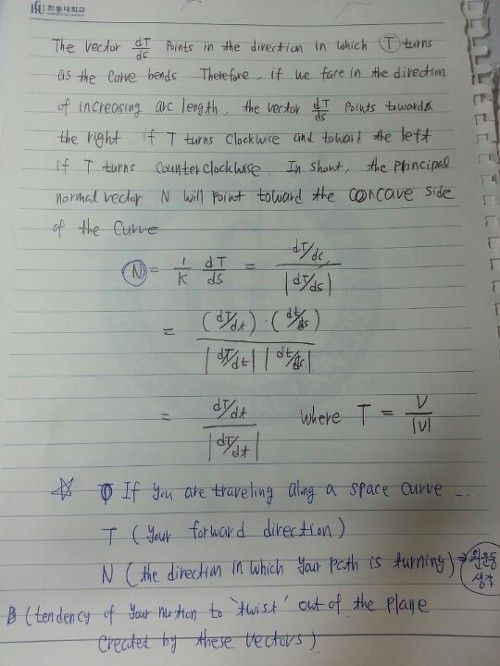 한동대학교
The vector dT/ds points in the direction in which T turns
as the curve bends Therefore, if we face in the direction
of increasing arc length, the vector dT/ds points towards
the right if T turns clockwise and toward the left
if T turns counterclockwise. In short, the principal
normal vector N will point toward the concave side
of the curve
N = 1/K dT/ds = dT/ds / |dT/ds|
= (dT/dt)·(dt/ds) / |dT/dt| |dt/ds|
= dT/dt / |dT/dt| where T = V/|V|
☆ If you are traveling along a space curve ....
T (your forward direction)
N (the direction in which your path is turning) → 원운동
생각
B (tendency of your motion to 'twist' out of the plane
created by these vectors)